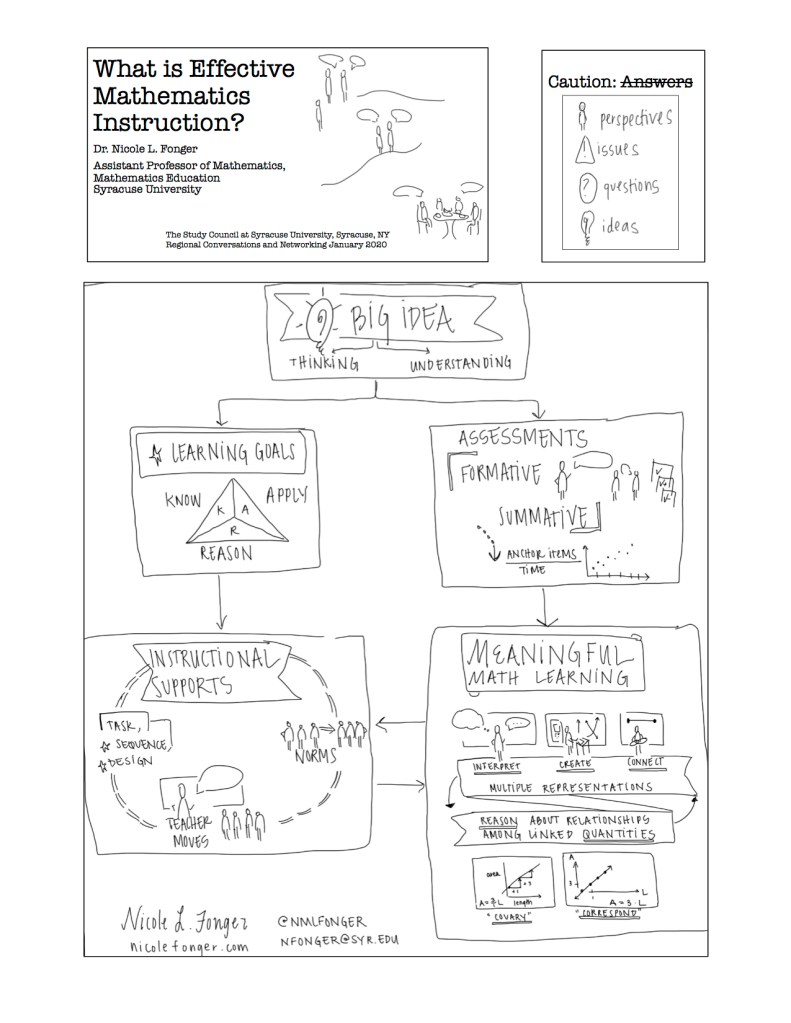 What is Effective
Mathematics
Instruction?
Dr. Nicole L. Fonger
Assistant Professor of Mathematics,
Mathematics Education
Syracuse University
The Study Council at Syracuse University, Syracuse, NY
Regional Conversations and Networking January 2020
Caution: Answers
perspectives
! issues
? questions
ideas
BIG IDEA
THINKING UNDERSTANDING
LEARNING GOALS
KNOW APPLY
K A
R
REASON
ASSESSMENTS
FORMATIVE
SUMMATIVE
ANCHOR ITEMS
TIME
INSTRUCTIONAL
SUPPORTS
TASK,
SEQUENCE,
DESIGN
NORMS
TEACHER
MOVES
MEANINGFUL
MATH LEARNING
INTERPRET CREATE CONNECT
MULTIPLE REPRESENTATIONS
REASON ABOUT RELATIONSHIPS
AMONG LINKED QUANTITIES
area
+3
+1
length
"COVARY"
A
3
1
L
A = 3 · L
"CORRESPOND"
Nicole L. Fonger
nicolefonger.com
@NMLFONGER
NFONGER@SYR.EDU